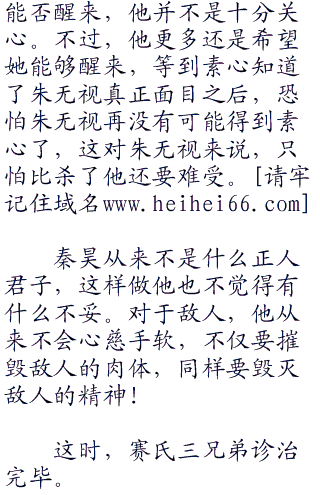 能否醒来，他并不是十分关
心。不过，他更多还是希望
她能够醒来，等到素心知道
了朱无视真正面目之后，恐
怕朱无视再没有可能得到素
心了，这对朱无视来说，只
怕比杀了他还要难受。[请牢
记住域名www.heihei66.com]
秦昊从来不是什么正人
君子，这样做他也不觉得有
什么不妥。对于敌人，他从
来不会心慈手软，不仅要摧
毁敌人的肉体，同样要毁灭
敌人的精神！
这时，赛氏三兄弟诊治
完毕。